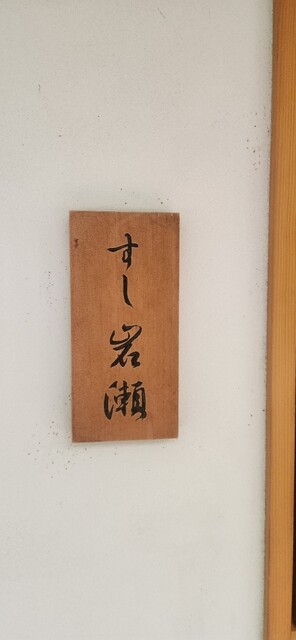 すし岩瀬